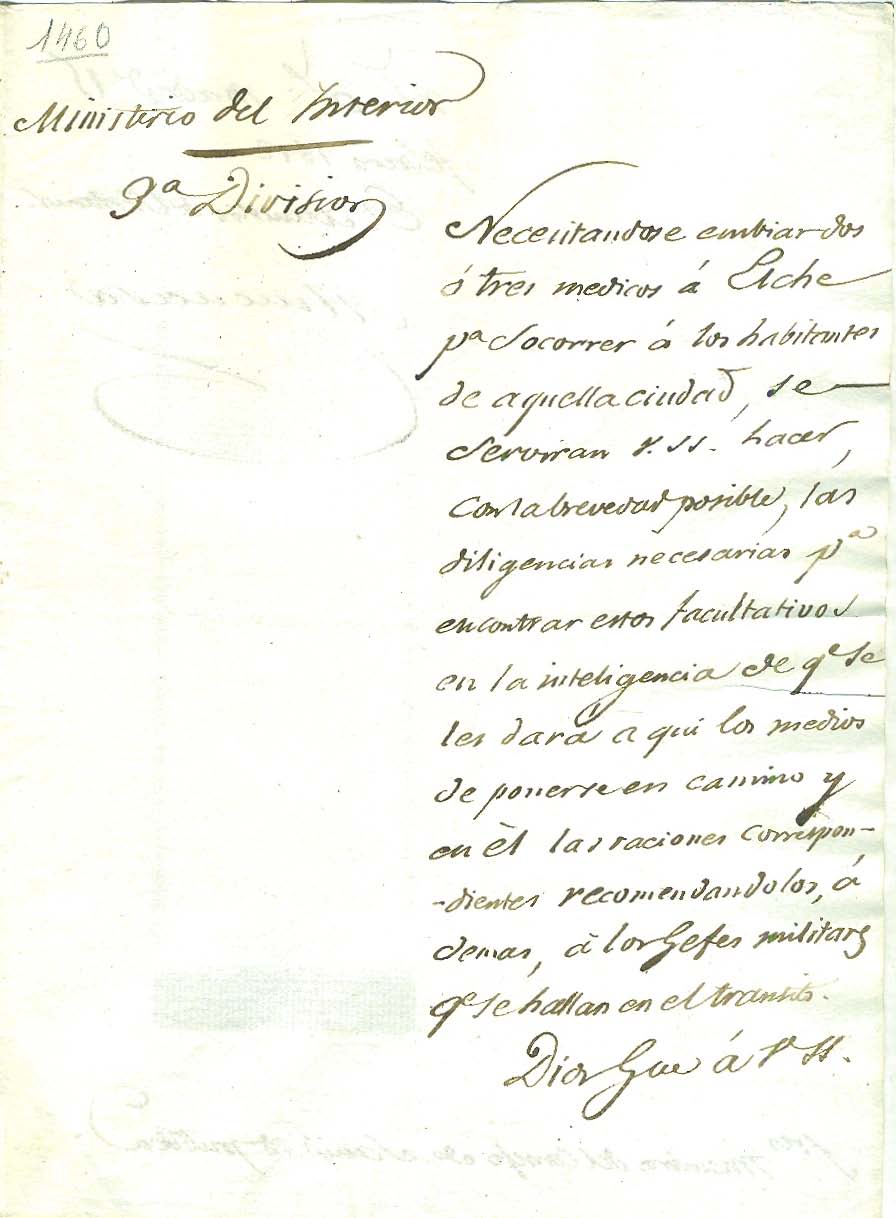 1460
Ministerio del Interior
3ª Division
Necesitandose embiar dos
ó tres medicos á Elche
pª Socorrer á los habitantes
de aquella ciudad, se
Serviran V. SS. hacer,
con la brevedad posible, las
diligencias necesarias pª
encontrar estos facultativos
en la inteligencia de qe se
les dará aqui los medios
de ponerse en camino y
en èl las raciones correspon-
-dientes recomendandolos, á
demas, à los Gefes militares
qe se hallan en el transito.
Dios Gue á V SS.